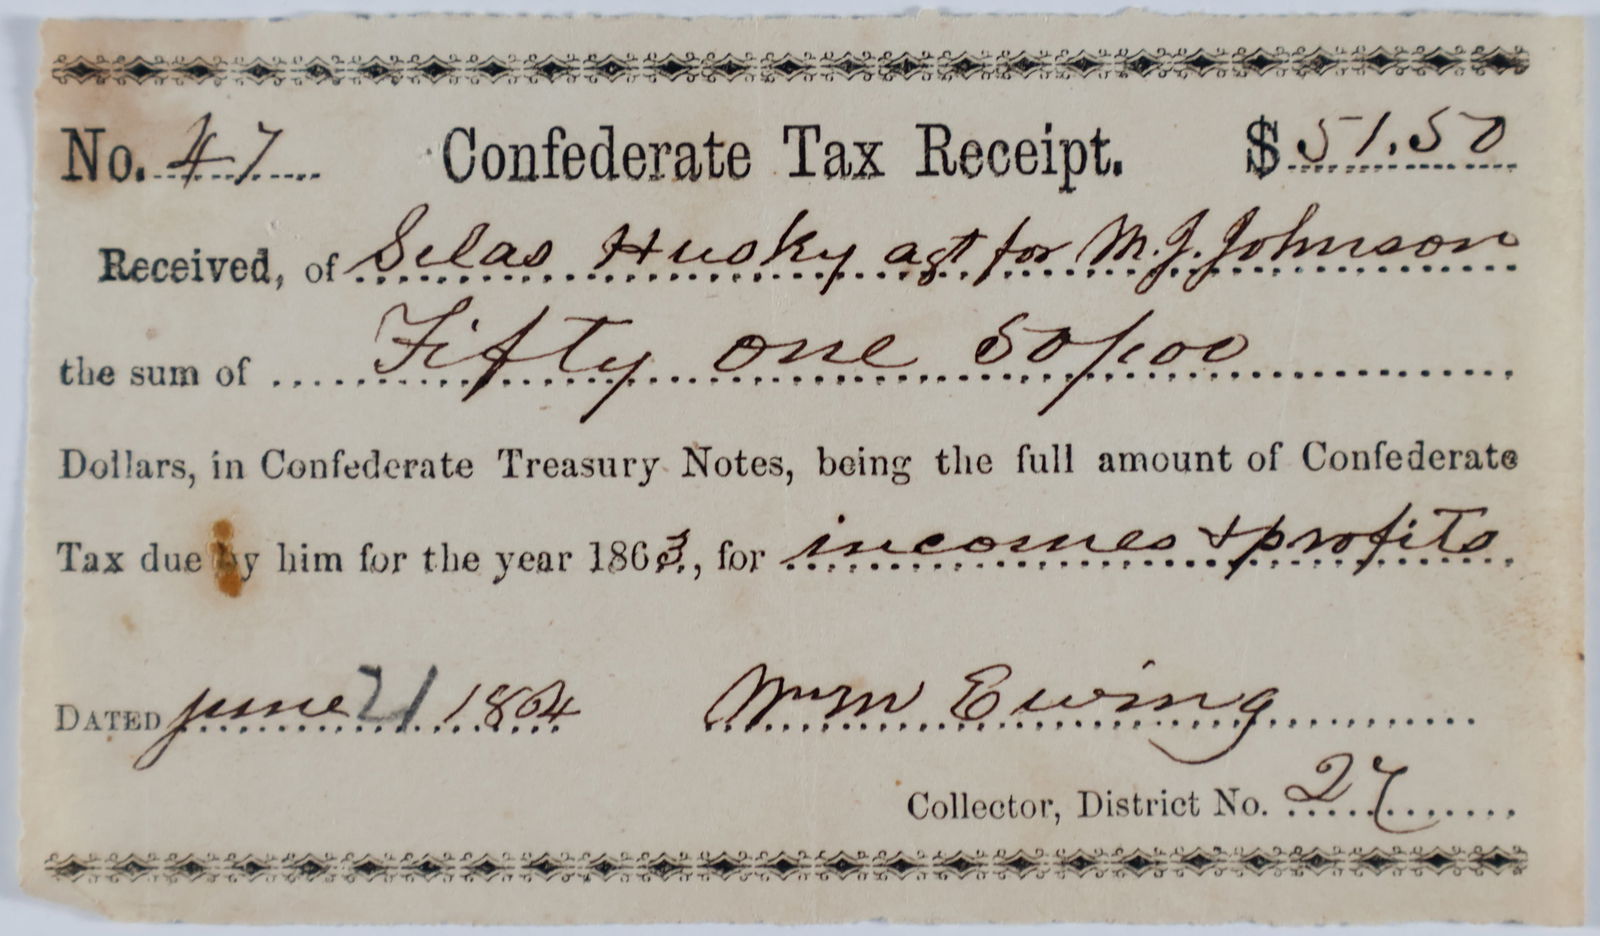 No. 47 Confederate Tax Receipt. $ 51.50
Received, of Selas Husky agt for M. J. Johnson
the sum of Fifty one 50/100
Dollars, in Confederate Treasury Notes, being the full amount of Confederate
Tax due by him for the year 1863, for incomes & profits
DATED june 21 1864 Wm Ewing
Collector, District No. 27